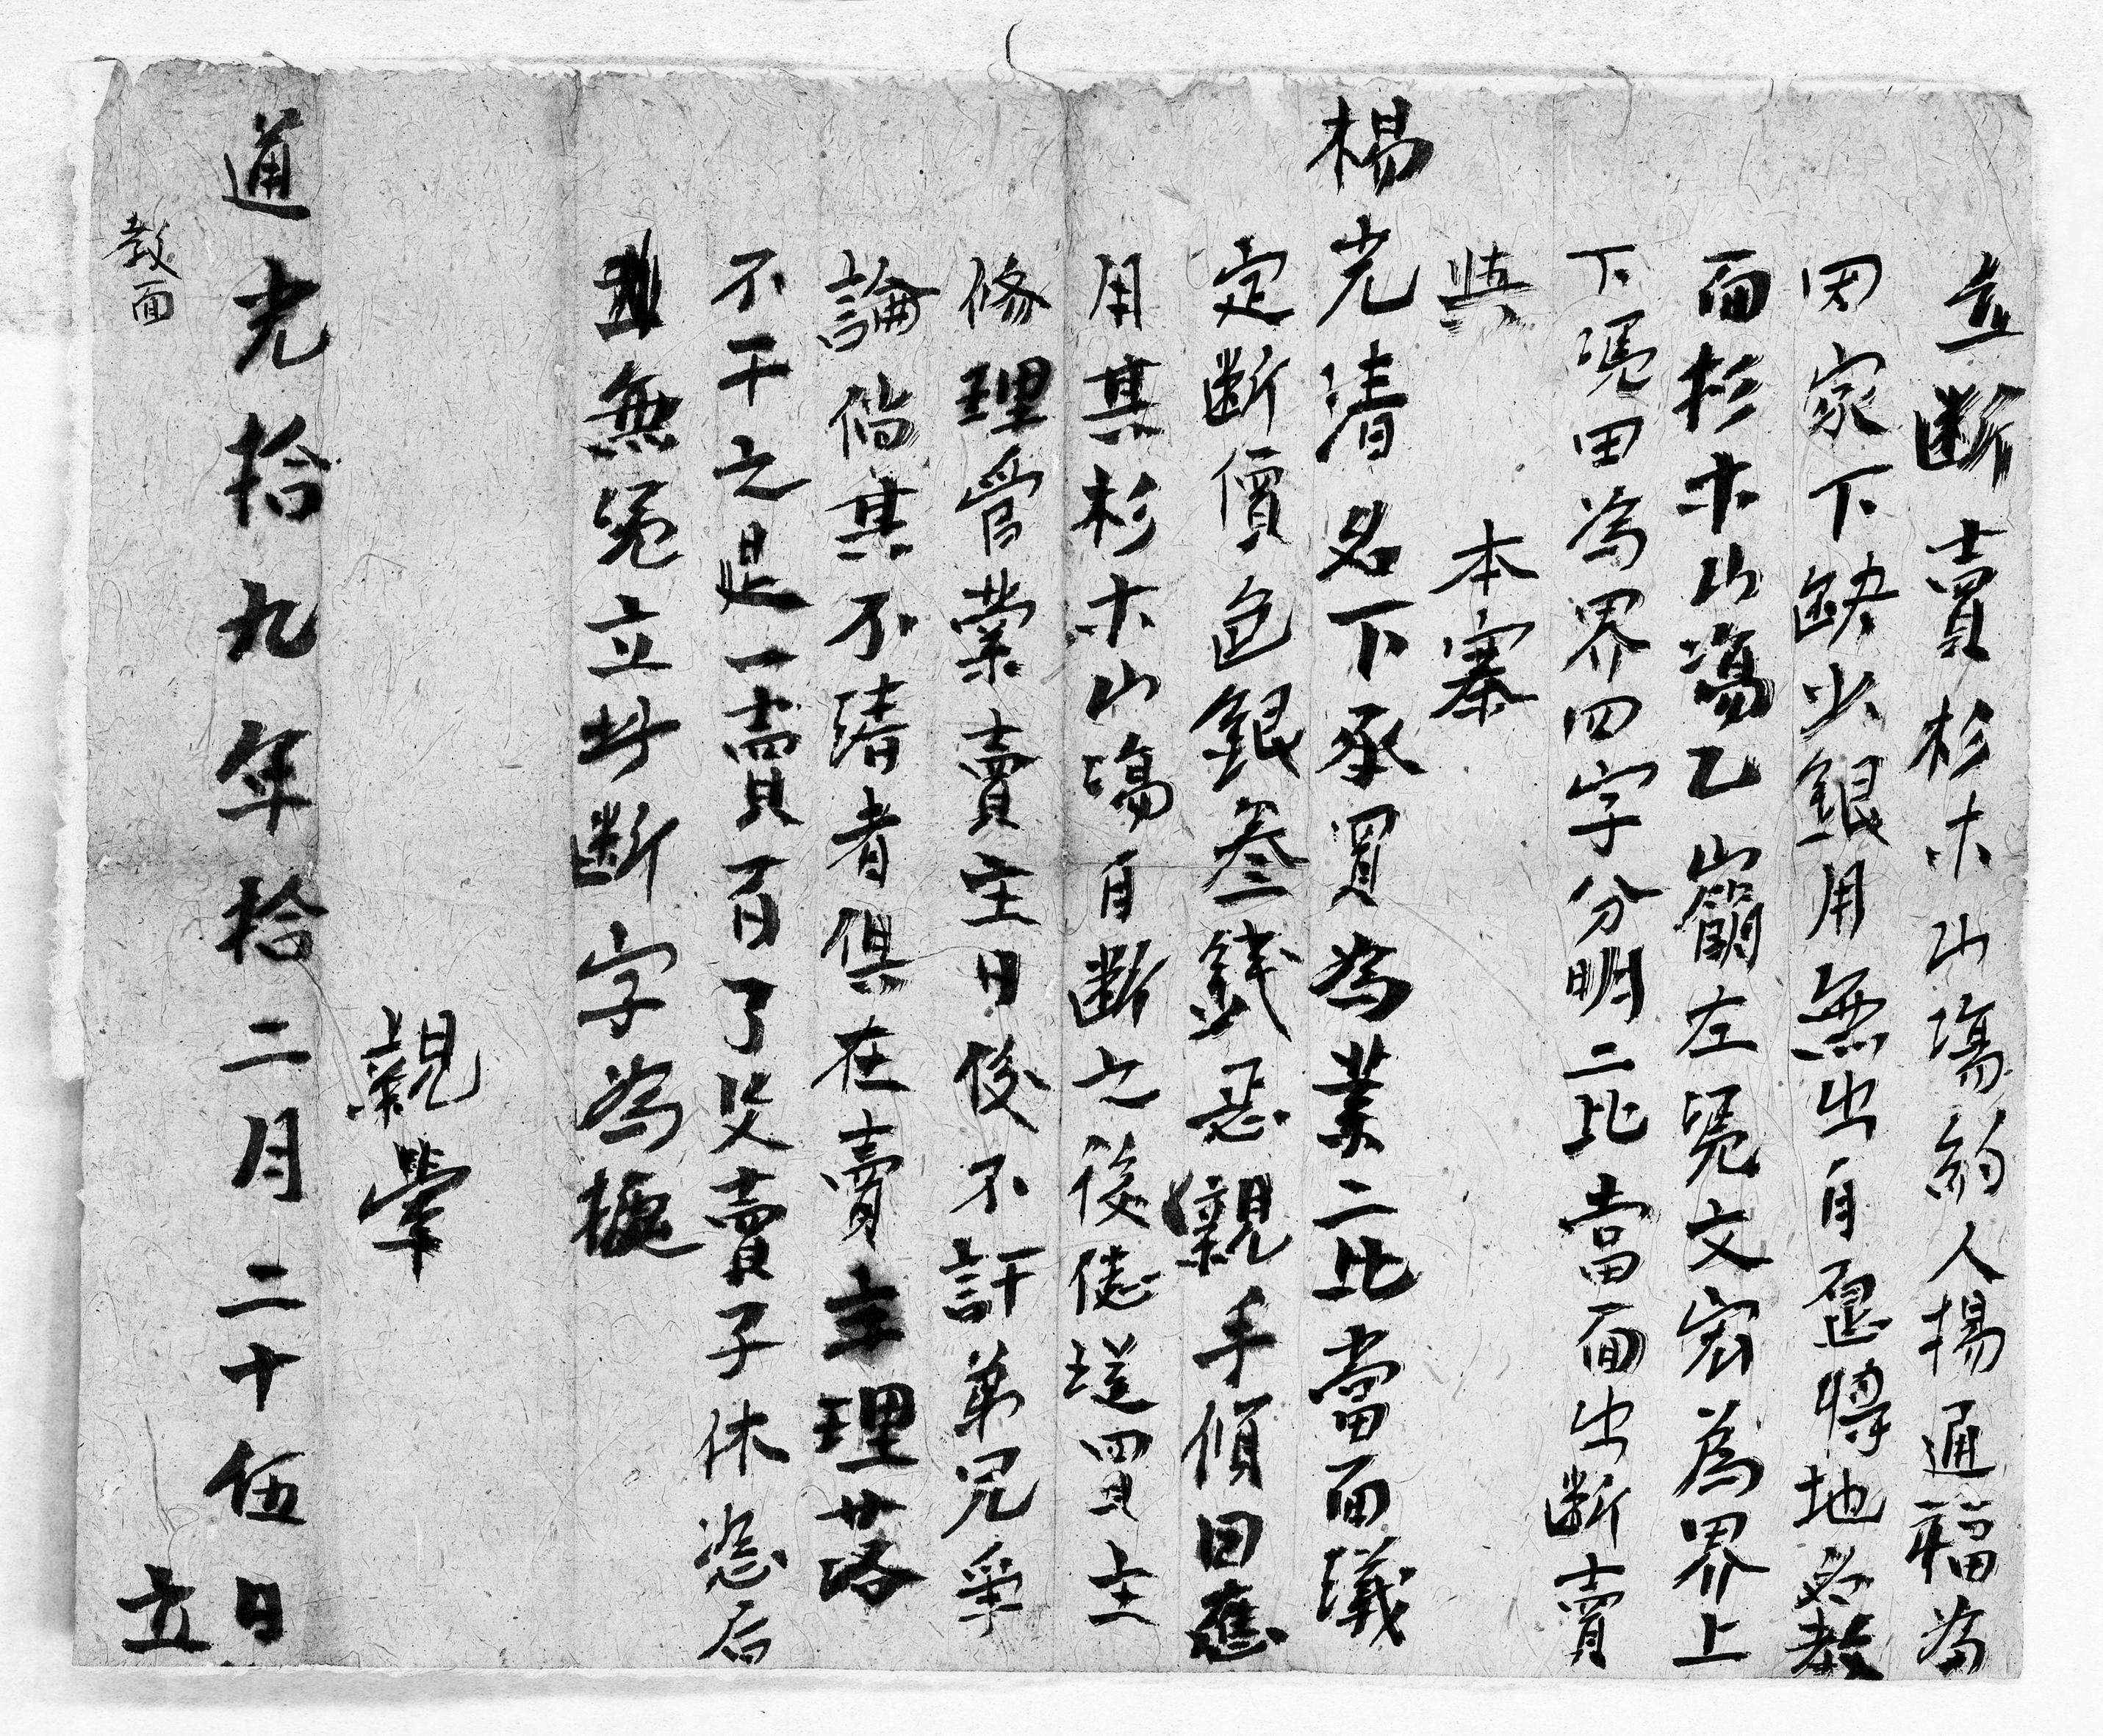 立斷賣杉木山塲約人楊通福為
因家下缺少銀用無出自愿將地名教
面杉木山塲乙嶺左凴文宏為界上
下凴田為界四字分明二比當面出斷賣
與 本寨
楊光清名下承買為業二比當面議
定斷價色銀叁錢忍親手領回應
用其杉木山塲自斷之後任從買主
修理管業賣主日後不許弟兄爭
論倘其不清者俱在賣主理落
不干之是一賣百了父賣子休恐后
無凴立此斷字為據
親筆
道光拾九年拾二月二十伍日
立
教面